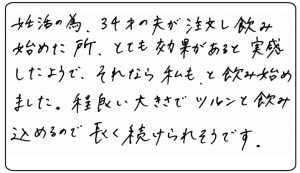 妊活の為、34才の夫が注文し飲み
始めた所、とても効果があると実感
したようで、それなら私も、と飲み始め
ました。程良い大きさでツルンと飲み
込めるので長く続けられそうです。